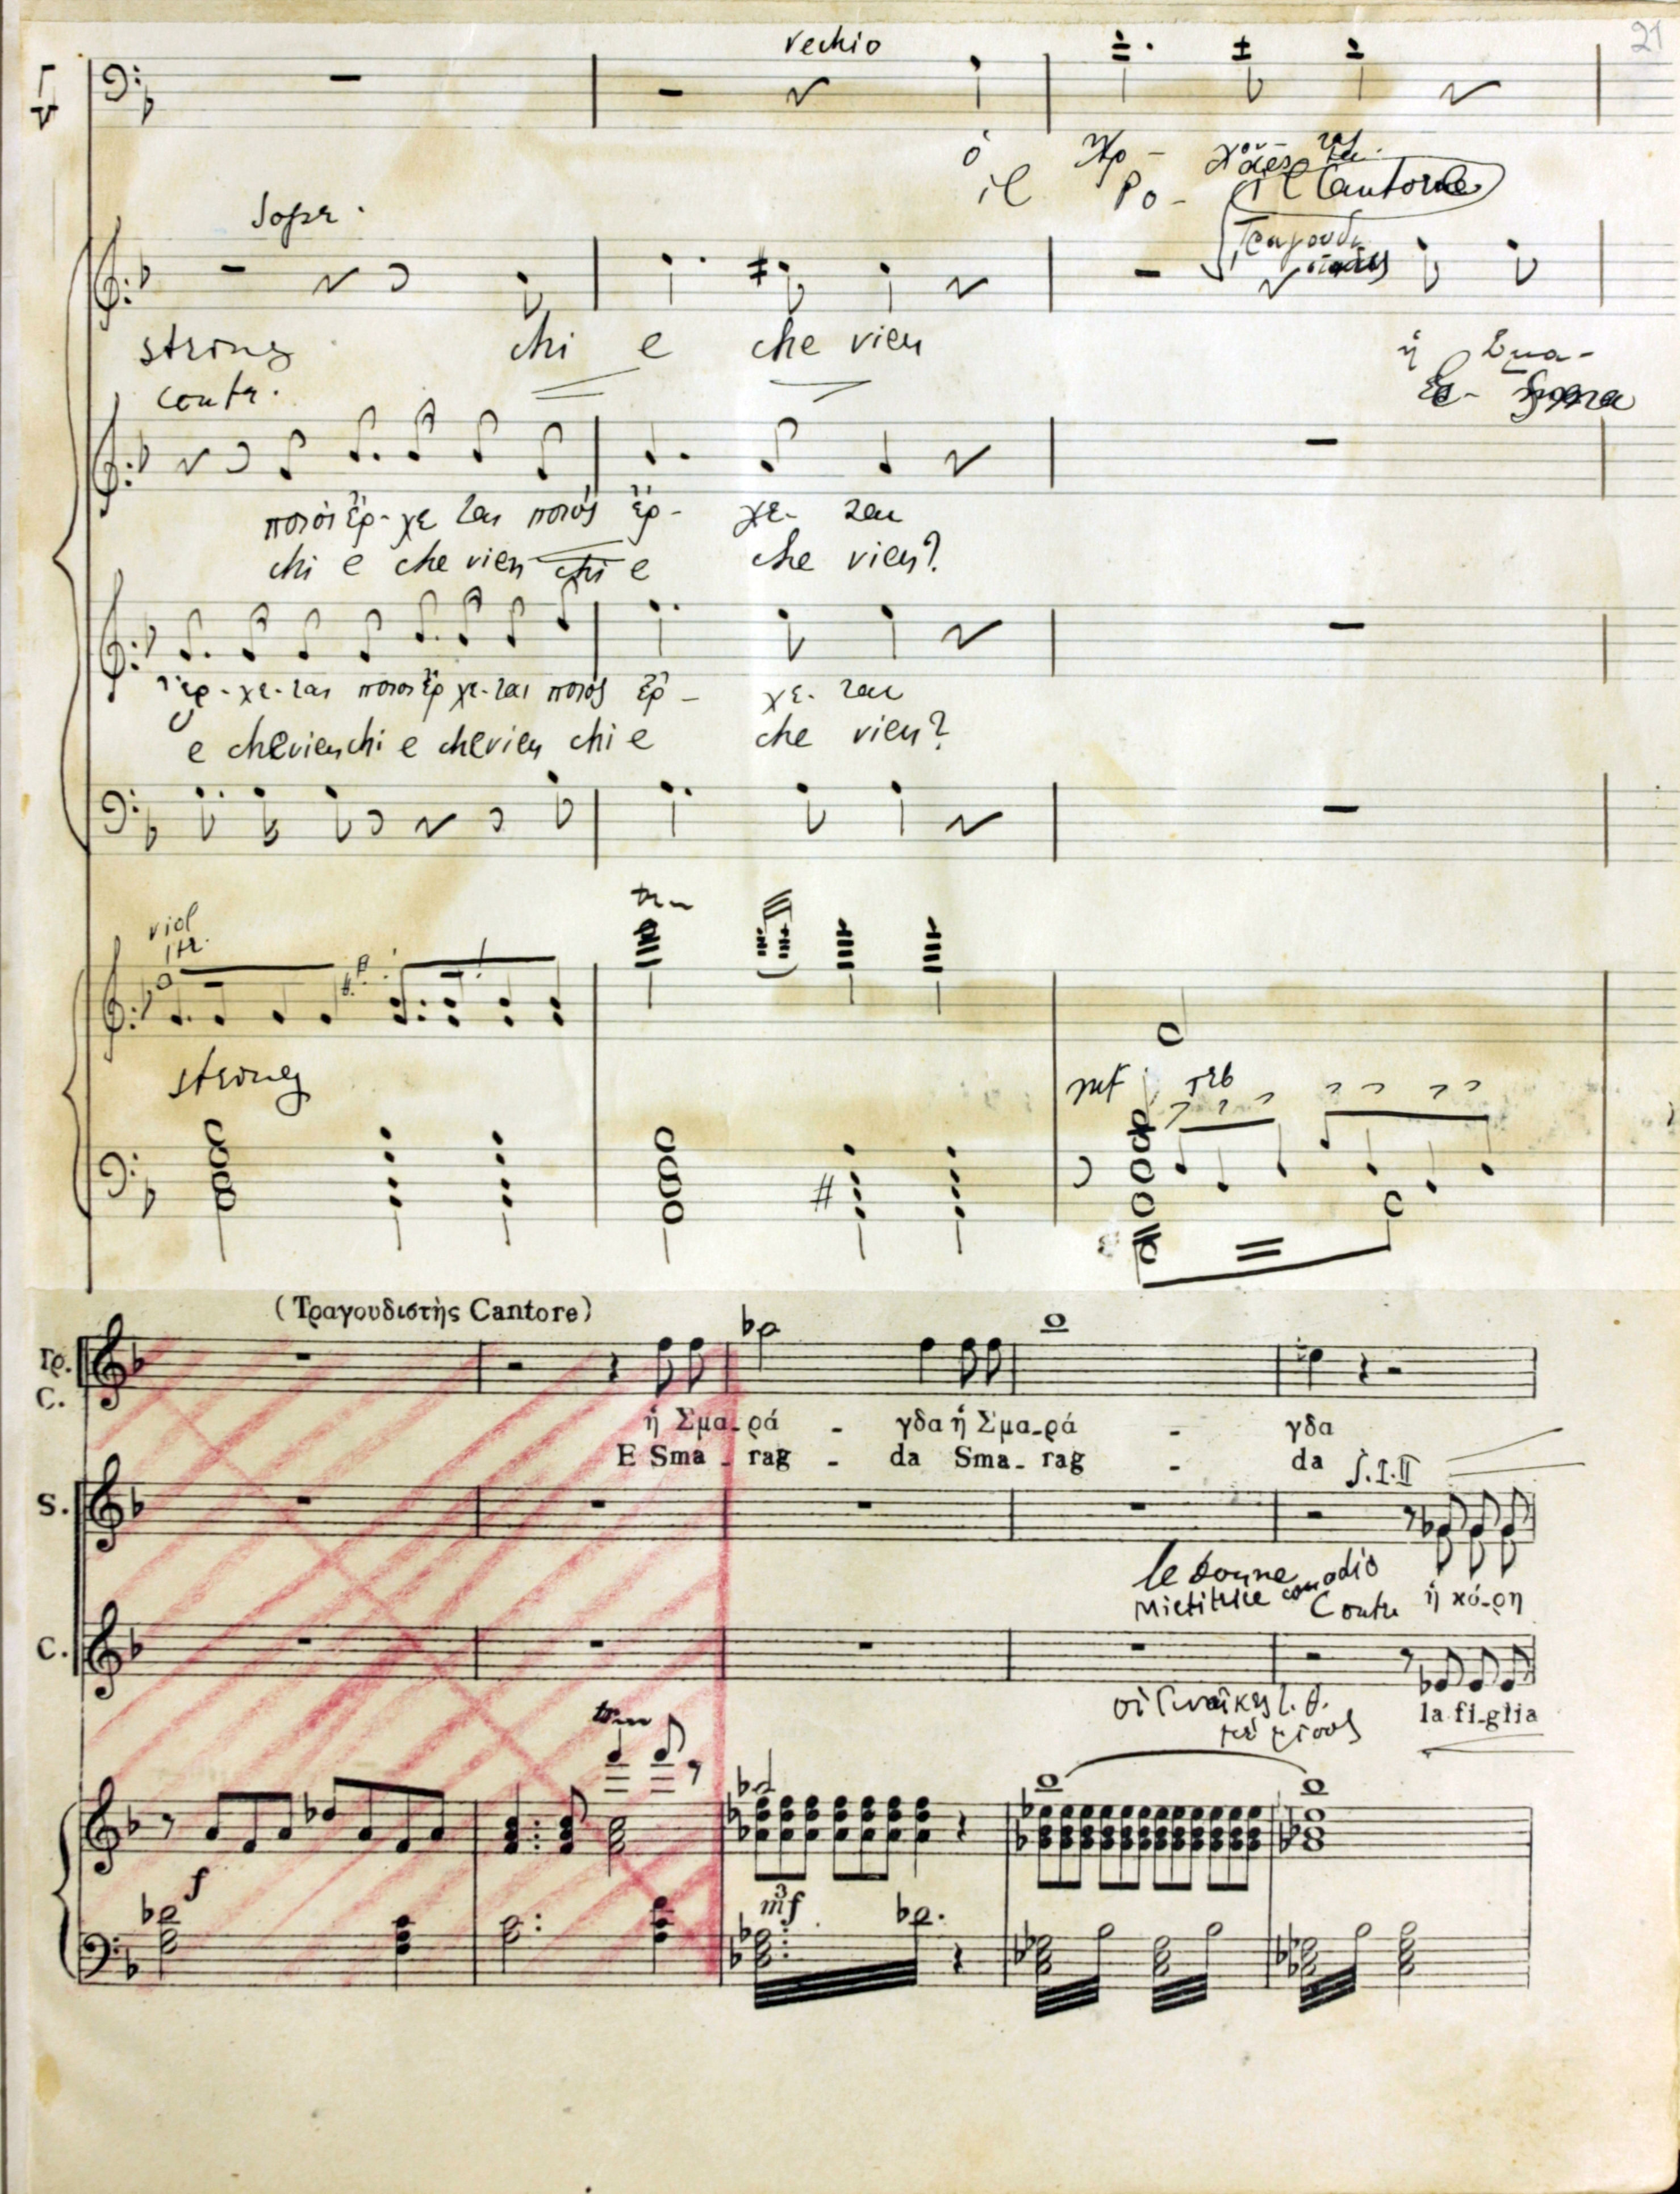 21
Vechio
ὁ
il Po-
il Cantore
Sopr.
string chi e che vien
ἡ Σμα-
contr.
ποιὸς ἔρ-χε ται ποιὸς ἔρ- χε- ται
chi e che vien chi e che vien?
ἔρ-χε-ται ποιὸς ἔρ χε-ται ποιὸς ἔρ- χε- ται
e che vien chi e che vien chi e che vien?
viol
tr
string
mf
(Τραγουδιστὴς Cantore)
Τρ.
C.
ἡ Σμα-ρά - γδα ἡ Σμα-ρά - γδα
E Sma - rag - da Sma - rag - da
S. I. II
S.
le donne
Mietitrice con odio
Contr
ἡ κό-ρη
C.
οἱ Γυναῖκες
μὲ μῖσος
la fi-glia
tr
f
3
mf